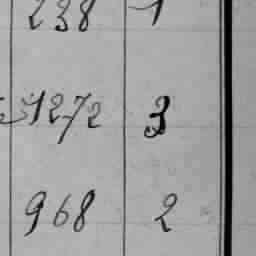 238 1
1272 3
968 2